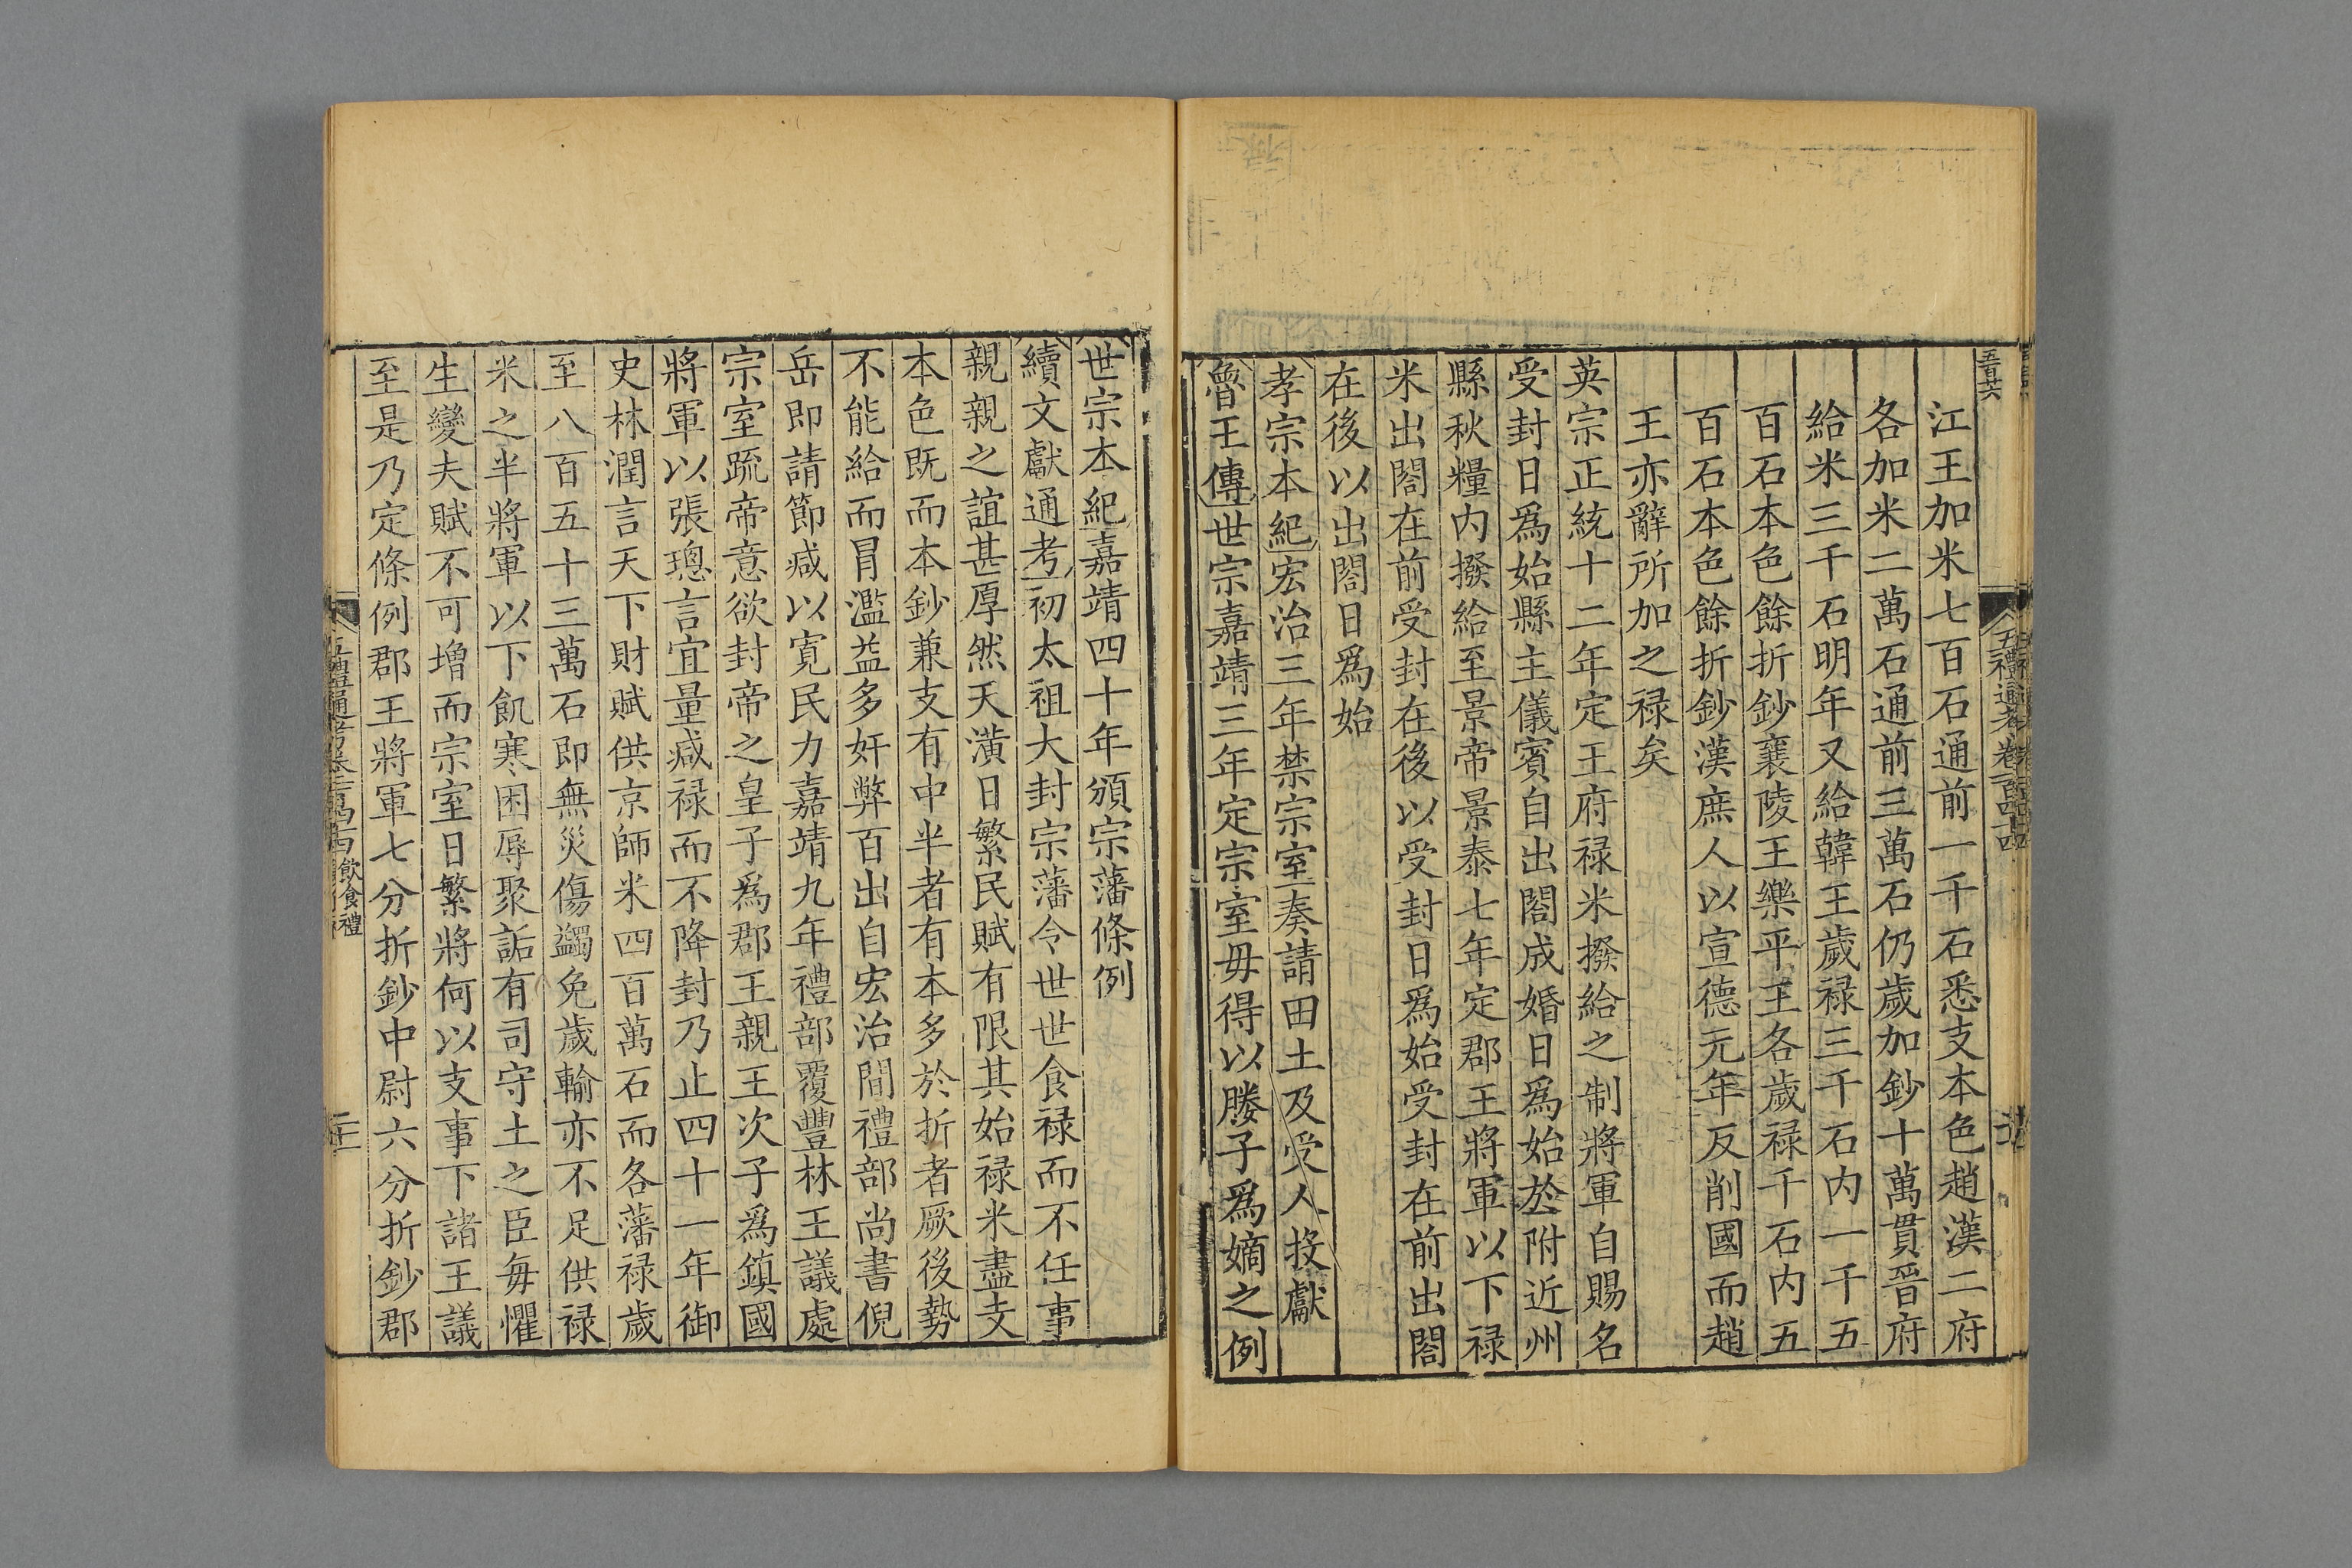 江王加米七百石通前一千石悉支本色趙漢二府
各加米二萬石通前三萬石仍歲加鈔十萬貫晉府
給米三千石明年又給韓王歲禄三千石内一千五
百石本色餘折鈔襄陵王樂平王各歲禄千石内五
百石本色餘折鈔漢庶人以宣德元年反削國而趙
王亦辭所加之禄矣
英宗正統十二年定王府禄米撥給之制將軍自賜名
受封日爲始縣主儀賓自出閤成婚日爲始於附近州
縣秋糧内撥給至景帝景泰七年定郡王將軍以下禄
米出閤在前受封在後以受封日爲始受封在前出閤
在後以出閤日爲始
孝宗本紀宏治三年禁宗室奏請田土及受人投獻
魯王傳世宗嘉靖三年定宗室毋得以媵子爲嫡之例
世宗本紀嘉靖四十年頒宗藩條例
續文獻通考初太祖大封宗藩令世世食禄而不任事
親親之誼甚厚然天潢日繁民賦有限其始禄米盡支
本色既而本鈔兼支有中半者有本多於折者厥後勢
不能給而冒濫益多奸弊百出自宏治間禮部尚書倪
岳即請節減以寬民力嘉靖九年禮部覆豐林王議處
宗室疏帝意欲封帝之皇子爲郡王親王次子爲鎮國
將軍以張璁言宜量減禄而不降封乃止四十一年御
史林潤言天下財賦供京師米四百萬石而各藩禄歲
至八百五十三萬石即無災傷蠲免歲輸亦不足供禄
米之半將軍以下飢寒困辱聚詬有司守土之臣每懼
生變夫賦不可增而宗室日繁將何以支事下諸王議
至是乃定條例郡王將軍七分折鈔中尉六分折鈔郡